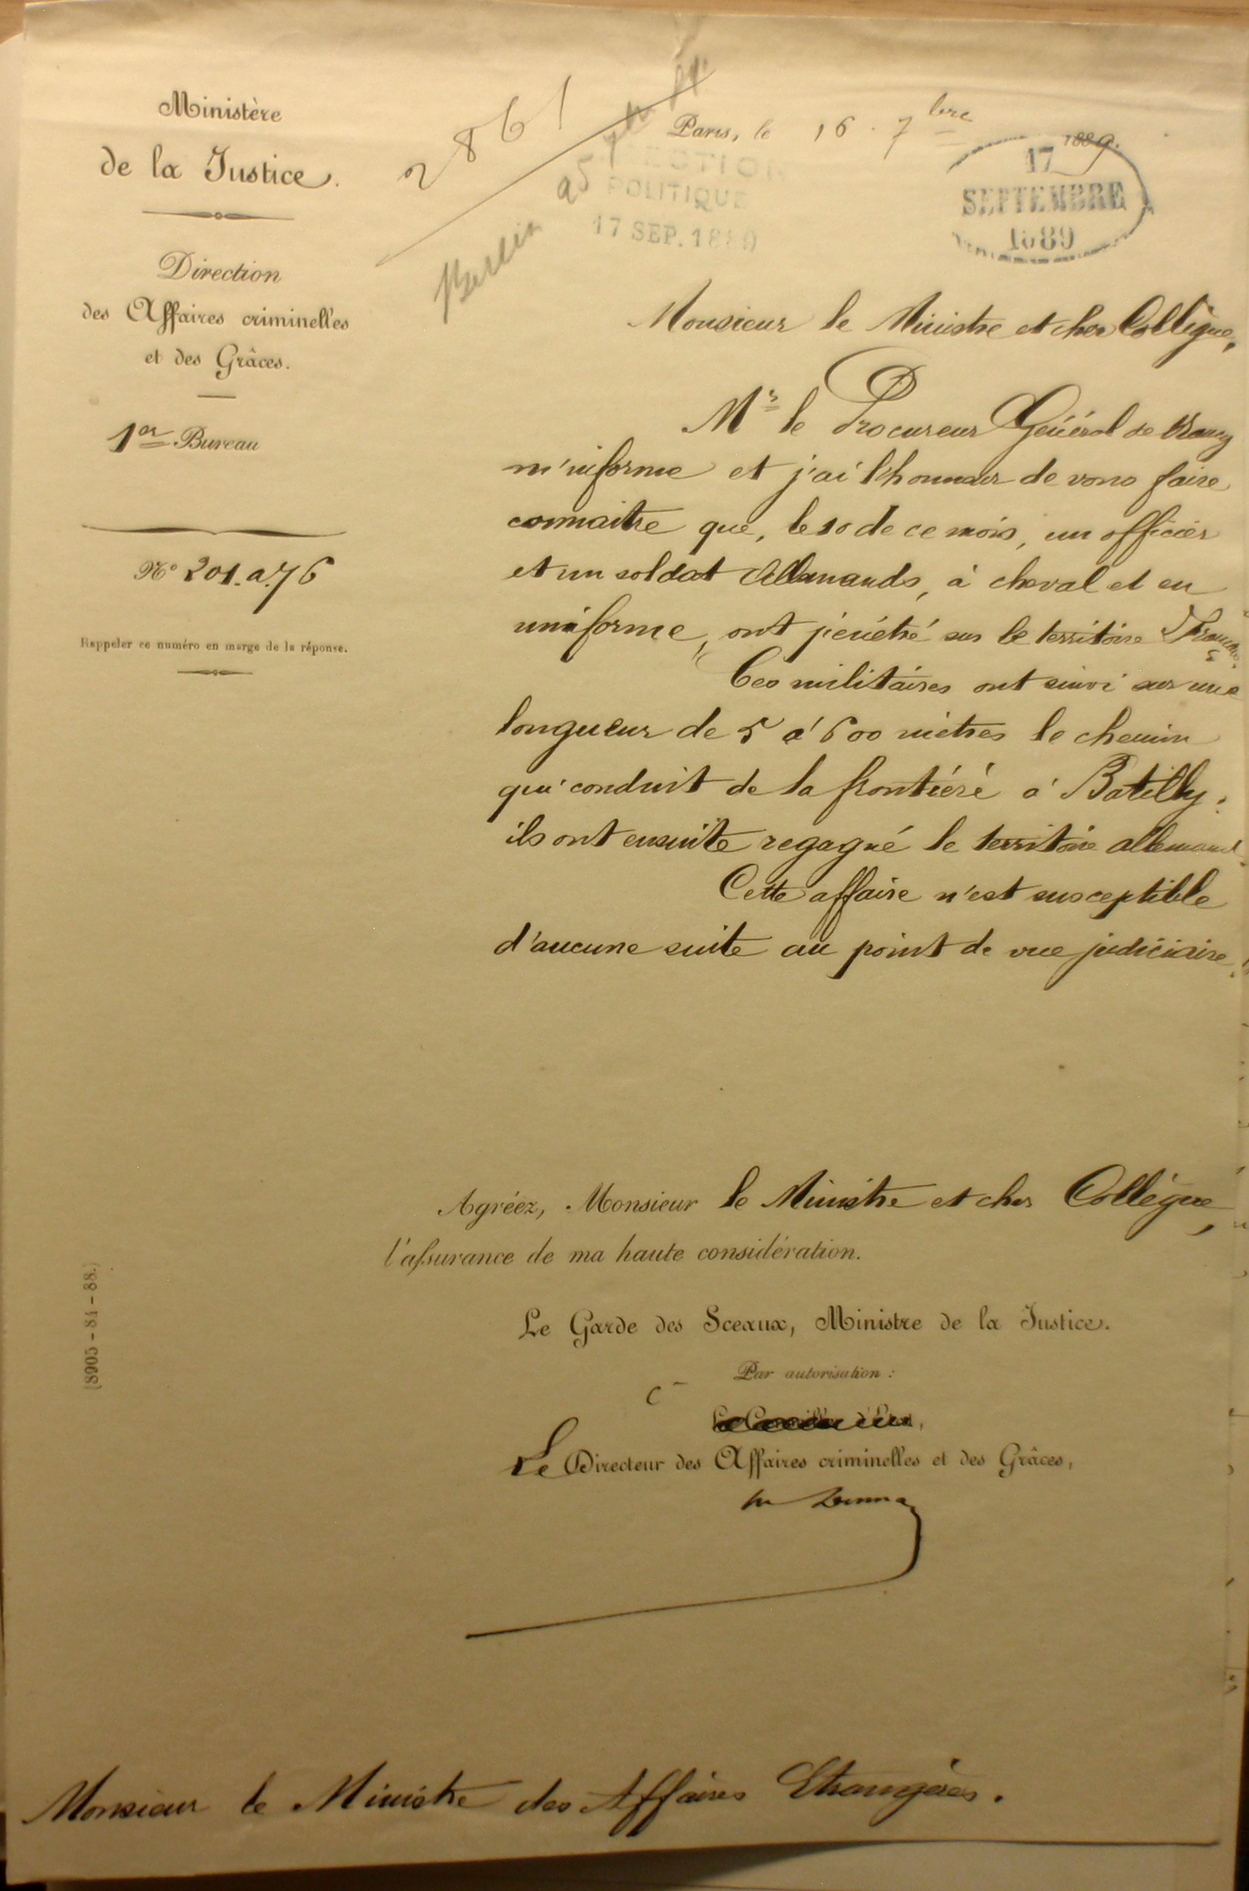 Ministère
de la Justice.
Direction
des Affaires criminelles
et des Grâces.
1er Bureau
N° 201.a.76
Rappeler ce numéro en marge de la réponse.
2861
Berlin 25 7bre
Paris, le 16. 7bre 1889.
POLITIQUE
17 SEP. 1889
17
SEPTEMBRE
1889
Monsieur le Ministre et cher Collègue,
Mr le Procureur Général de Nancy
m'informe et j'ai l'honneur de vous faire
connaitre que, le 10 de ce mois, un officier
et un soldat Allemands, à cheval et en
uniforme, ont pénétré sur le territoire Français.
Ces militaires ont suivi sur une
longueur de 5 à 600 mètres le chemin
qui conduit de la frontière à Batilly;
ils ont ensuite regagné le territoire allemand.
Cette affaire n'est susceptible
d'aucune suite au point de vue judiciaire.
Agréez, Monsieur le Ministre et cher Collègue,
l'assurance de ma haute considération.
Le Garde des Sceaux, Ministre de la Justice.
Par autorisation :
Le Directeur des Affaires criminelles et des Grâces,
Monsieur le Ministre des Affaires Etrangères.
(8905-84-88.)